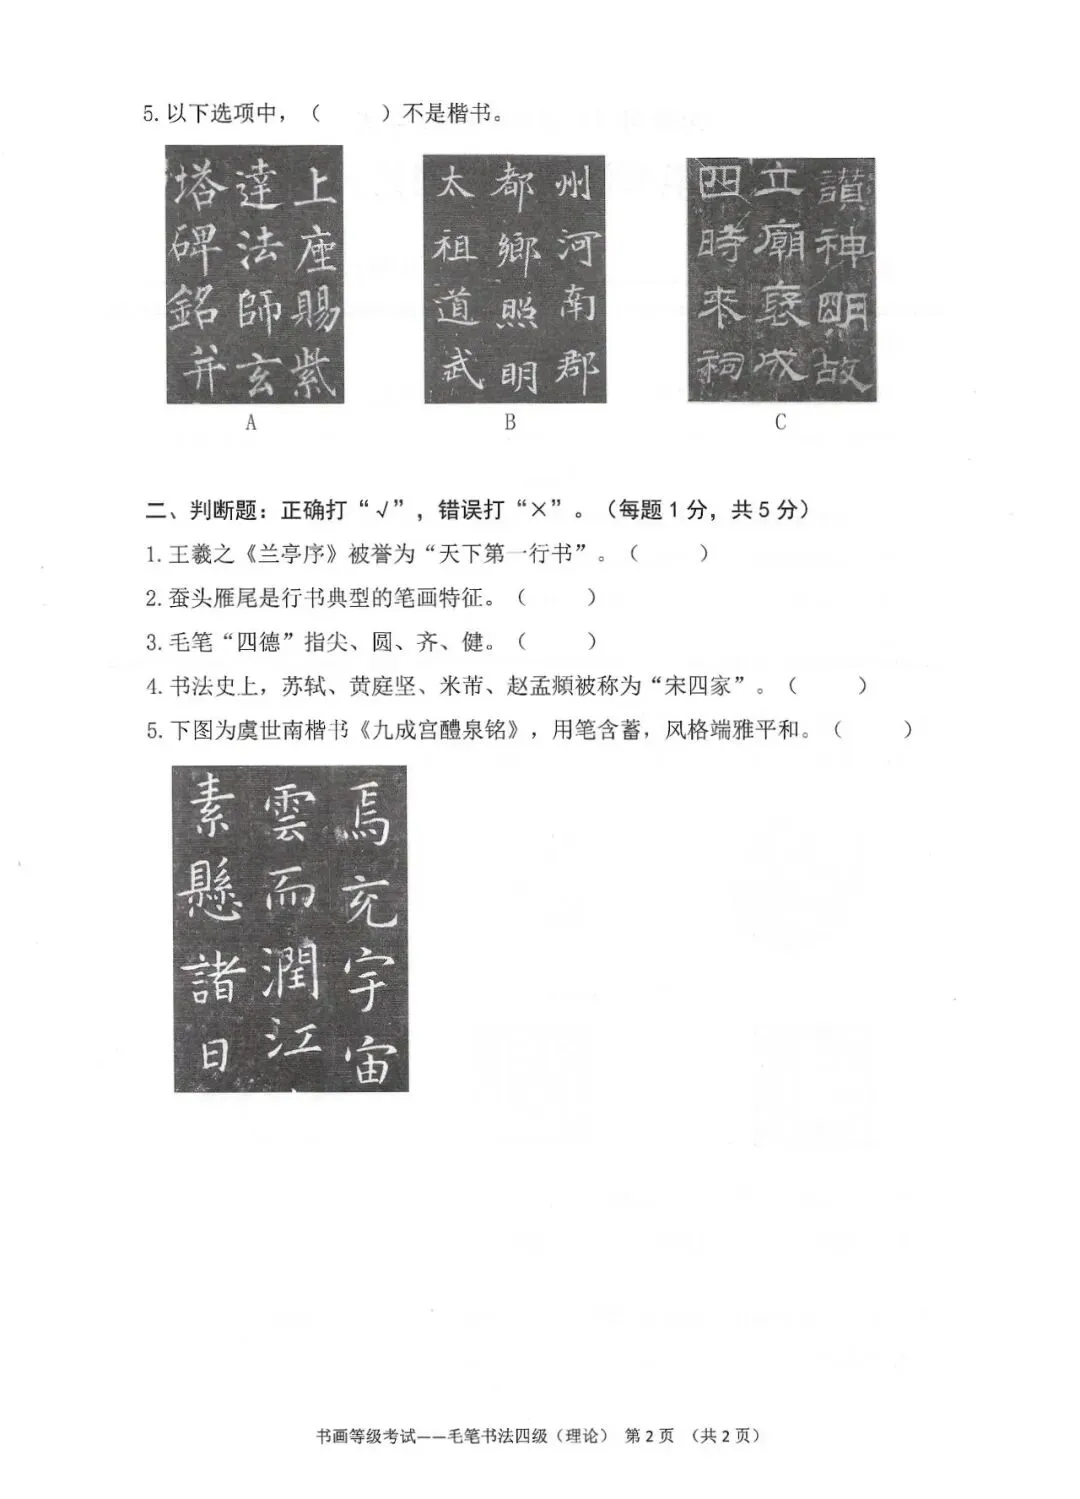 5. 以下选项中，（　　）不是楷书。
上座賜紫
達法師玄
塔碑銘并
A
州河南郡
都鄉照明
太祖道武
B
讃神明故
立廟褒成
四時來祠
C
二、判断题：正确打“√”，错误打“×”。（每题1分，共5分）
1. 王羲之《兰亭序》被誉为“天下第一行书”。（　　）
2. 蚕头雁尾是行书典型的笔画特征。（　　）
3. 毛笔“四德”指尖、圆、齐、健。（　　）
4. 书法史上，苏轼、黄庭坚、米芾、赵孟頫被称为“宋四家”。（　　）
5. 下图为虞世南楷书《九成宫醴泉铭》，用笔含蓄，风格端雅平和。（　　）
焉充宇宙
雲而潤江
素懸諸日
书画等级考试——毛笔书法四级（理论） 第2页 （共2页）